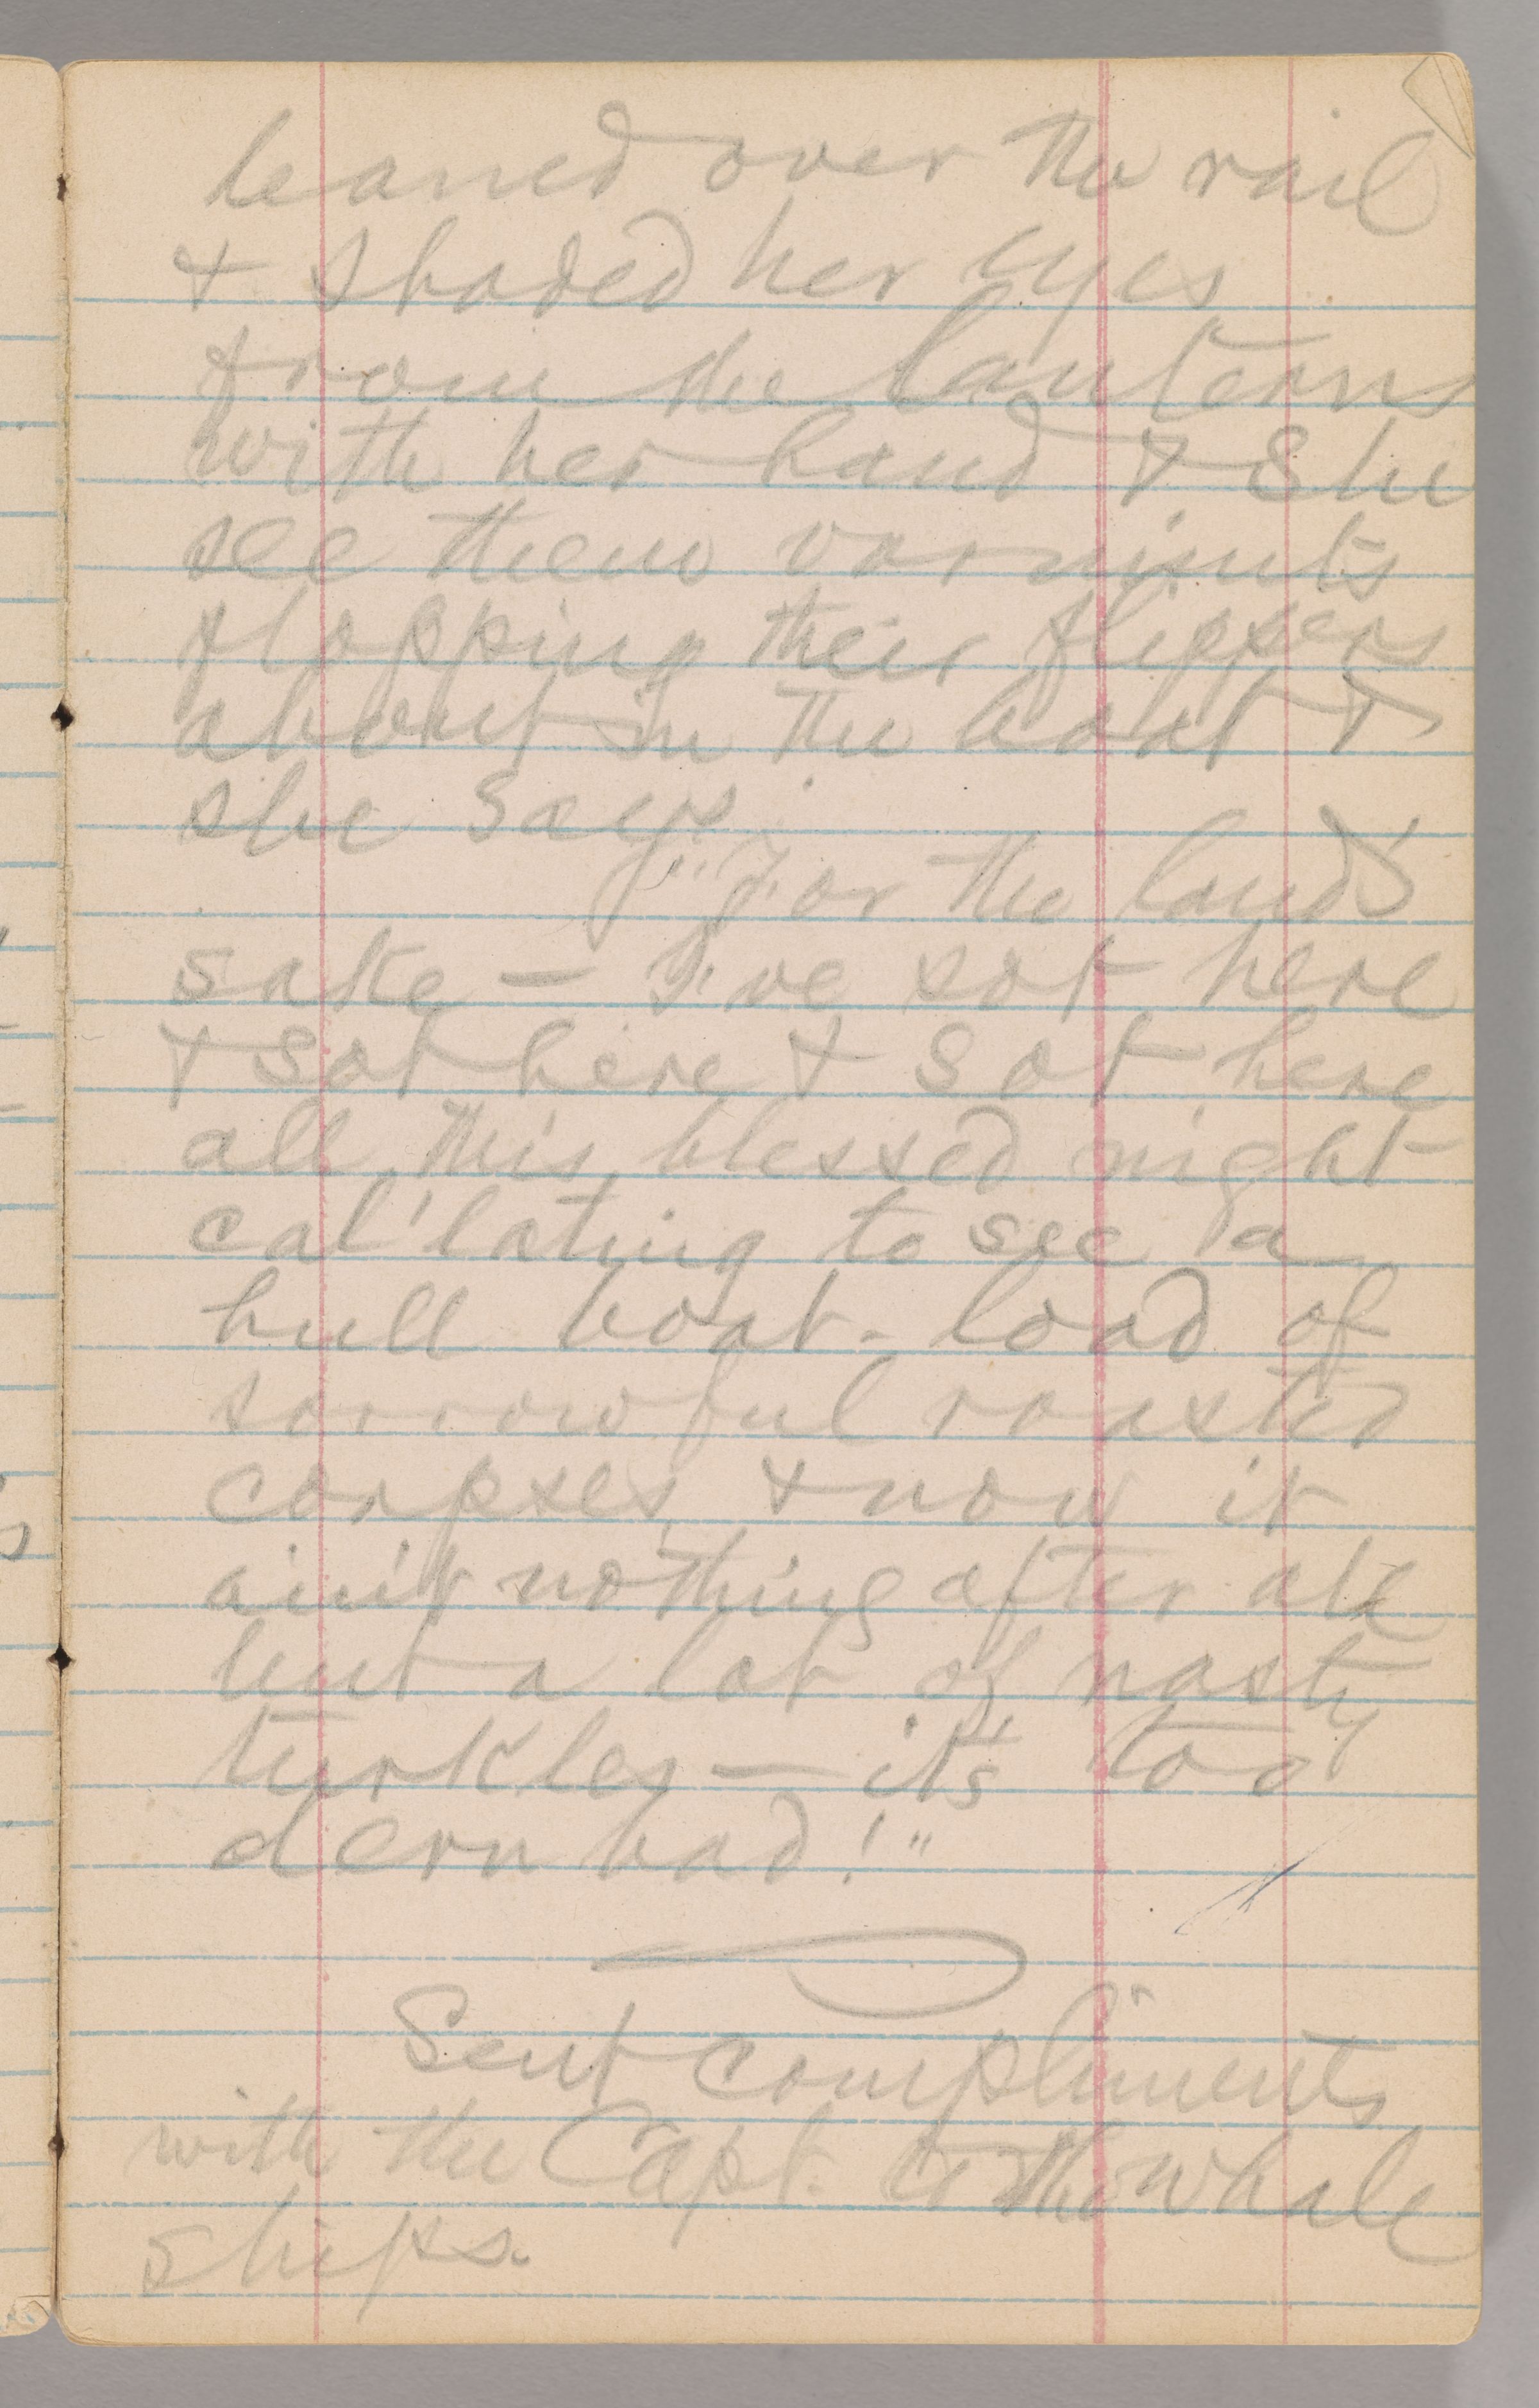 leaned over the rail
& shaded her eyes
from the lanterns
with her hand & she
see them varmints
flopping their flippers
about in the boat &
she says:
"For the land's
sake — I've sot here
& sot here & sot here
all this blessed night
cal'lating to see a
hull boat-load of
sorrowful roasted
corpses, & now it
ain't nothing after all
but a lot of nasty
turkles — it's too
dern bad!"
Sent compliments
with the Capt. to the whale
ships.